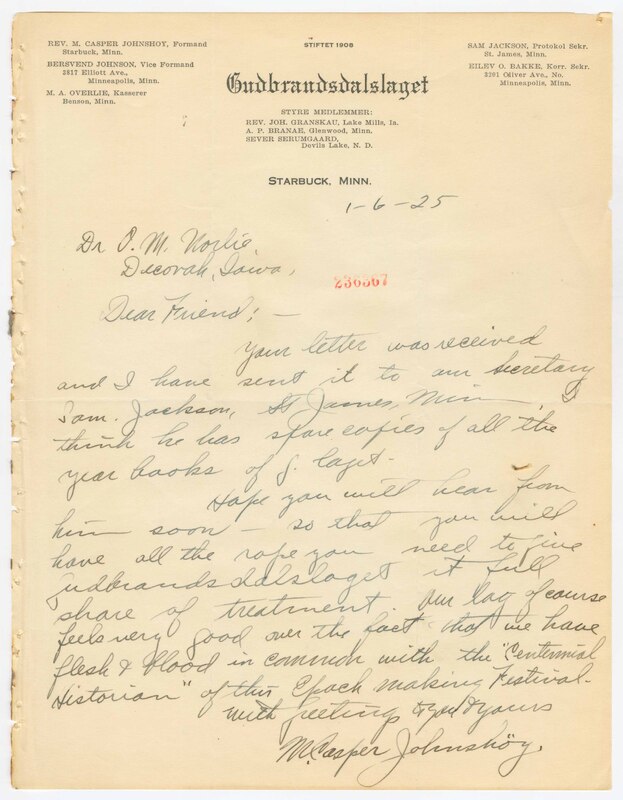 REV. M. CASPER JOHNSHOY, Formand
Starbuck, Minn.
BERSVEND JOHNSON, Vice Formand
3817 Elliott Ave.,
Minneapolis, Minn.
M. A. OVERLIE, Kasserer
Benson, Minn.
STIFTET 1908
Gudbrandsdalslaget
STYRE MEDLEMMER:
REV. JOH. GRANSKAU, Lake Mills, Ia.
A. P. BRANAE, Glenwood, Minn.
SEVER SERUMGAARD,
Devils Lake, N. D.
SAM JACKSON, Protokol Sekr.
St. James, Minn.
EILEV O. BAKKE, Korr. Sekr.
3201 Oliver Ave., No.
Minneapolis, Minn.
STARBUCK, MINN.
1-6-25
Dr O. M. Norlie,
Decorah, Iowa,
236567
Dear Friend; -
Your letter was received
and I have sent it to our Secretary
Sam. Jackson, St James, Minn, I
think he has spare copies of all the
year books of g. laget.
Hope you will hear from
him soon - so that you will
have all the rope you need to give
Gudbrandsdalslaget it full
share of treatment. Our lag of course
feels very good over the fact that we have
flesh & blood in common with the "Centennial
Historian" of this Epoch making Festival.
With greetings to you & yours
M. Casper Johnshöy.